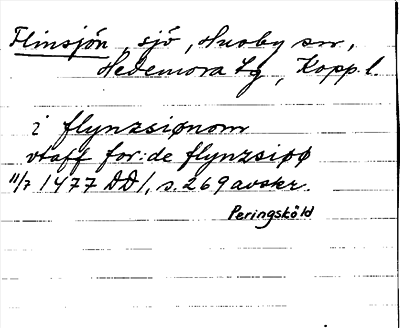 Flinsjön, sjö, Husby sn,
Hedemora tg, Kopp. l.
i flynzsiønom
vtaff for:de flynzsiøø
11/7 1477 DD 1, s. 269 avskr.
Peringsköld